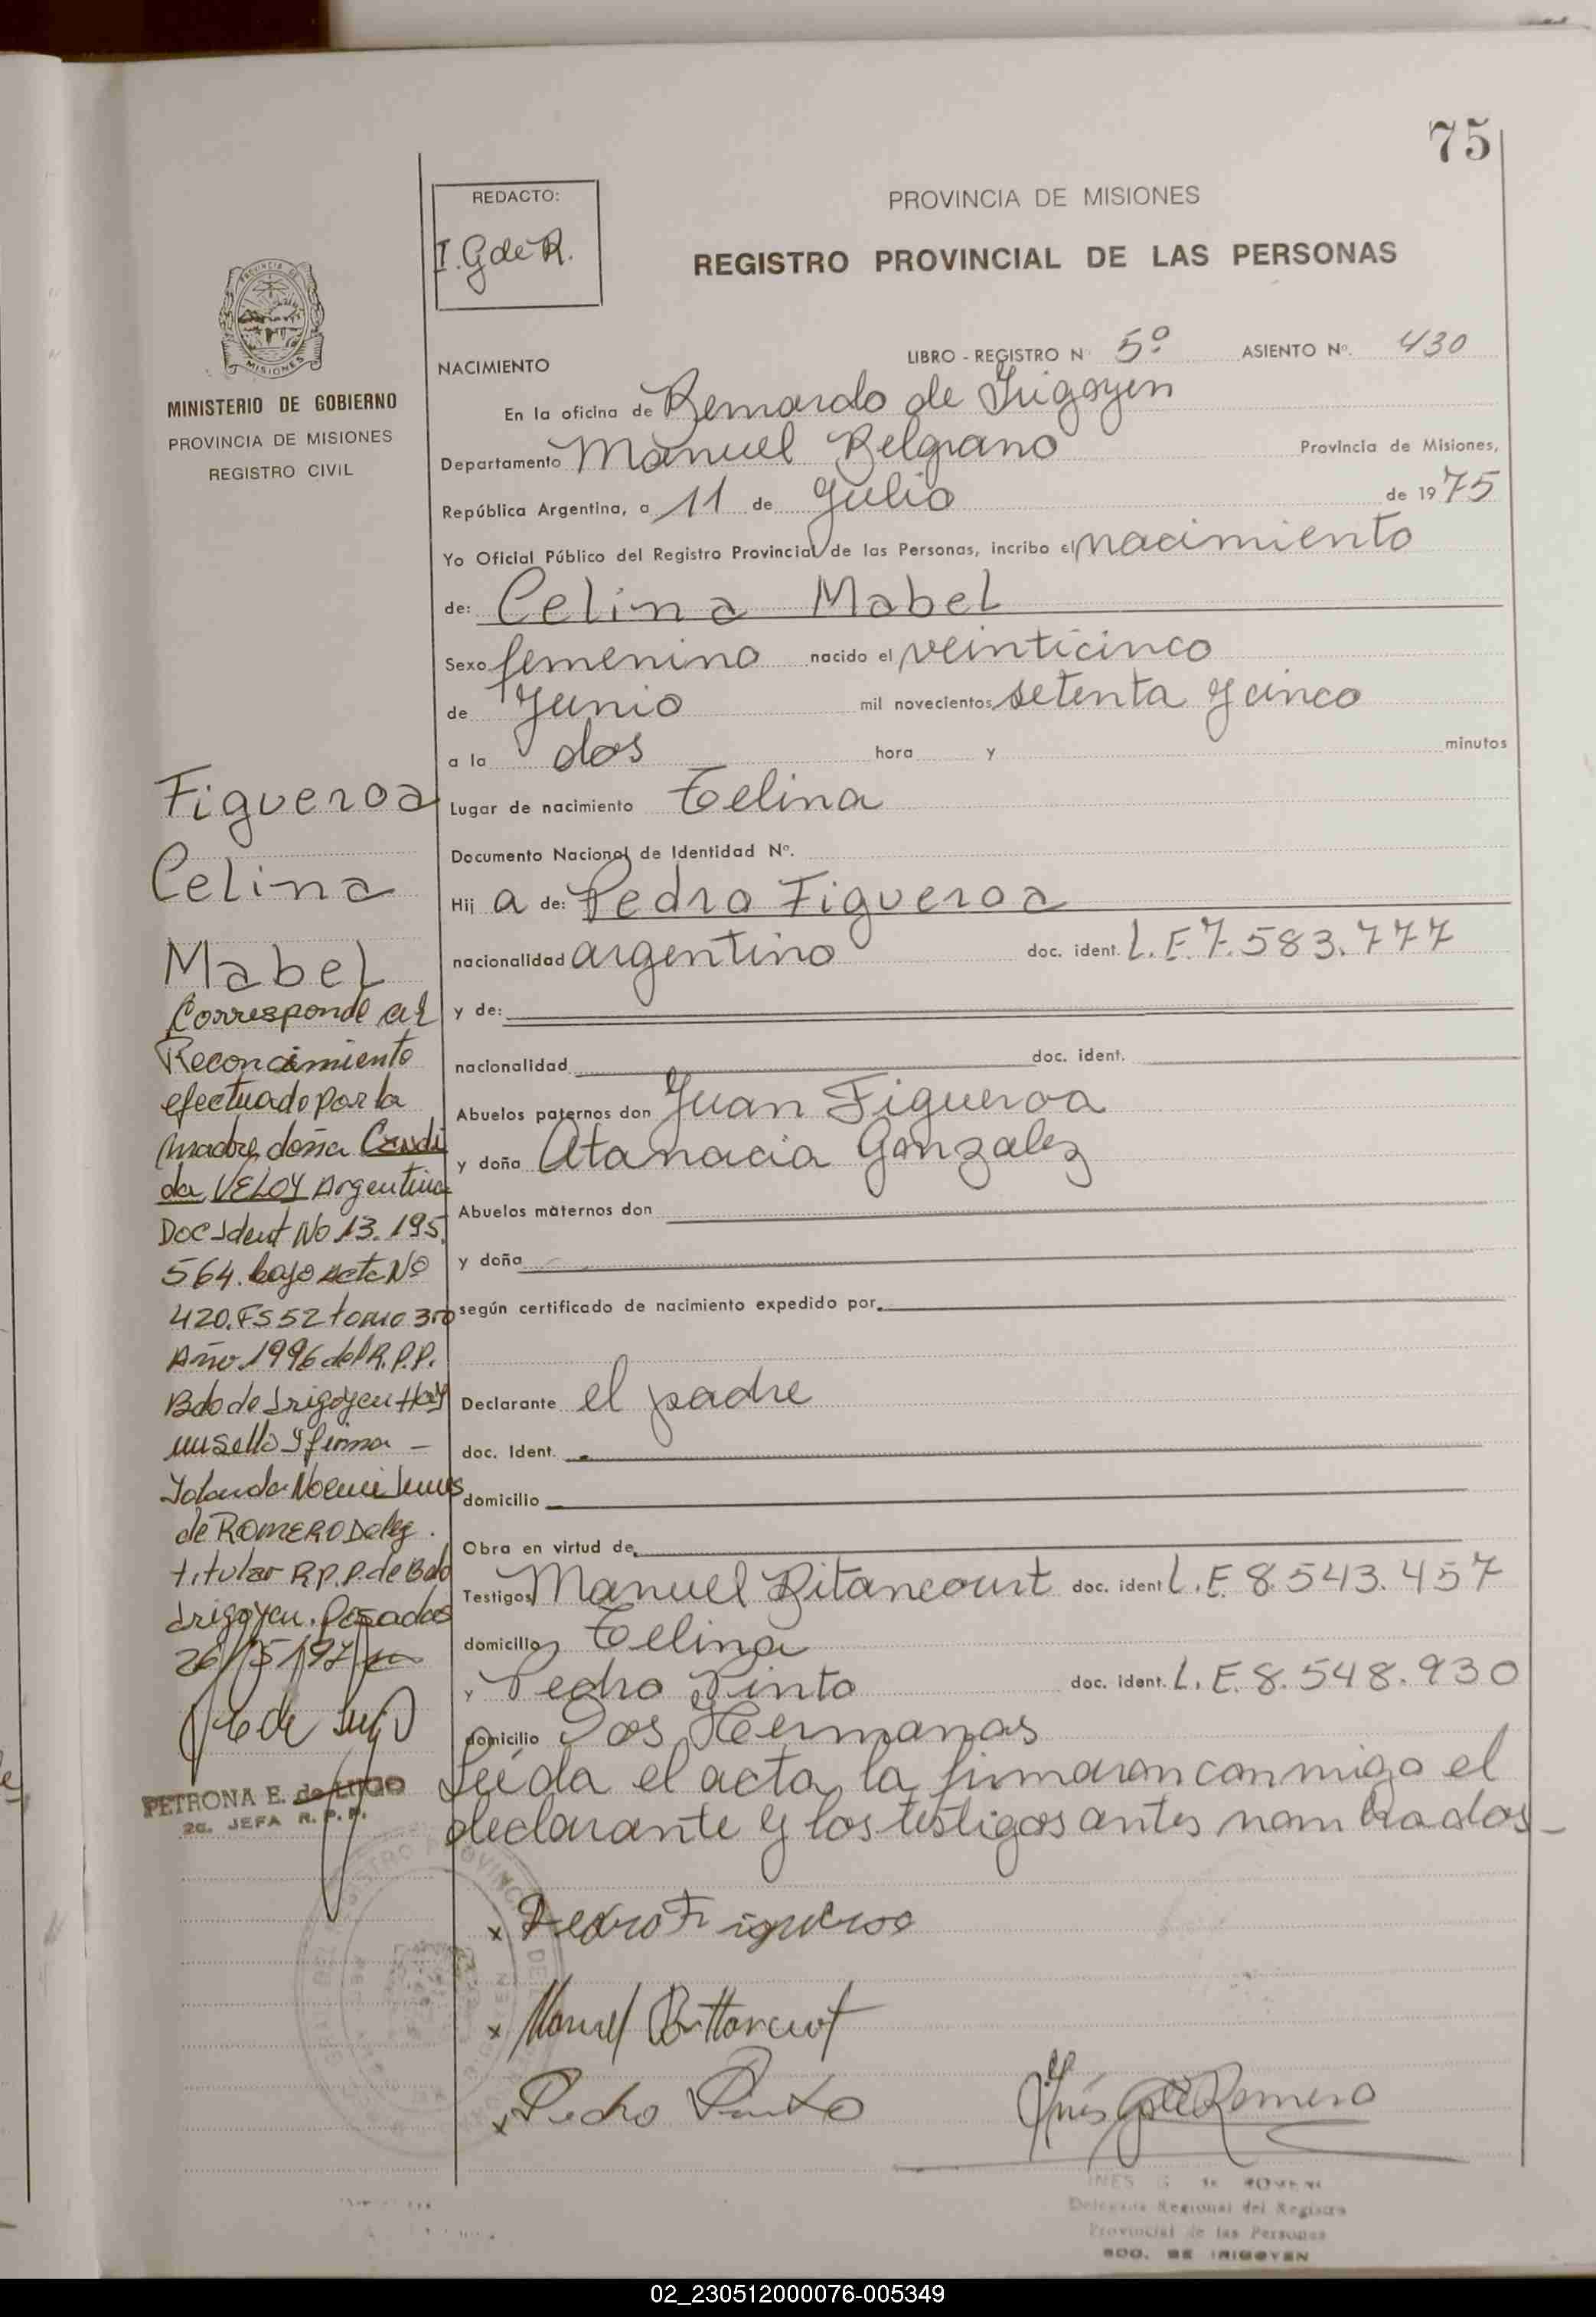 75
REDACTO:
I. G de R.
PROVINCIA DE MISIONES
REGISTRO PROVINCIAL DE LAS PERSONAS
PROVINCIA DE
MISIONES
MINISTERIO DE GOBIERNO
PROVINCIA DE MISIONES
REGISTRO CIVIL
NACIMIENTO
LIBRO - REGISTRO N 5º ASIENTO Nº. 430
En la oficina de Bernardo de Irigoyen
Departamento Manuel Belgrano Provincia de Misiones,
República Argentina, a 11 de Julio de 1975
Yo Oficial Público del Registro Provincial de las Personas, incribo el nacimiento
de: Celina Mabel
Sexo femenino nacido el veinticinco
de Junio mil novecientos setenta y cinco
a la dos hora y minutos
Lugar de nacimiento Celina
Documento Nacional de Identidad Nº.
Hij a de: Pedro Figueroa
nacionalidad argentino doc. ident. L.E. 7.583.777
y de:
nacionalidad doc. ident.
Abuelos paternos don Juan Figueroa
y doña Atanacia Gonzalez
Abuelos maternos don
y doña
según certificado de nacimiento expedido por
Declarante el padre
doc. Ident.
domicilio
Obra en virtud de
Testigos Manuel Bitancourt doc. ident L.E. 8.543.457
domicilio Celina
y Pedro Pinto doc. ident. L.E. 8.548.930
domicilio Dos Hermanas
Leída el acta, la firmaron conmigo el
declarante y los testigos antes nombrados_
x Pedro Figueroa
x Manuel Bittancurt
x Pedro Pinto
Inés G de Romero
INES G de ROMERO
Delegada Regional del Registro
Provincial de las Personas
BDO. DE IRIGOYEN
Figueroa
Celina
Mabel
Corresponde al
Reconocimiento
efectuado por la
madre doña Candi
da VELOY Argentina
Doc Ident No 13.195.
564. bajo acta Nº
420. FS 52 tomo 3ro
Año 1996 del R.P.P.
Bdo de Irigoyen Hay
un sello y firma -
Yolanda Noemi
de ROMERO Deleg.
titular R.P.P. de Bdo
Irigoyen. Posadas
26/05/97
PETRONA E. de LUGO
2a. JEFA R.P.P.
02_230512000076-005349